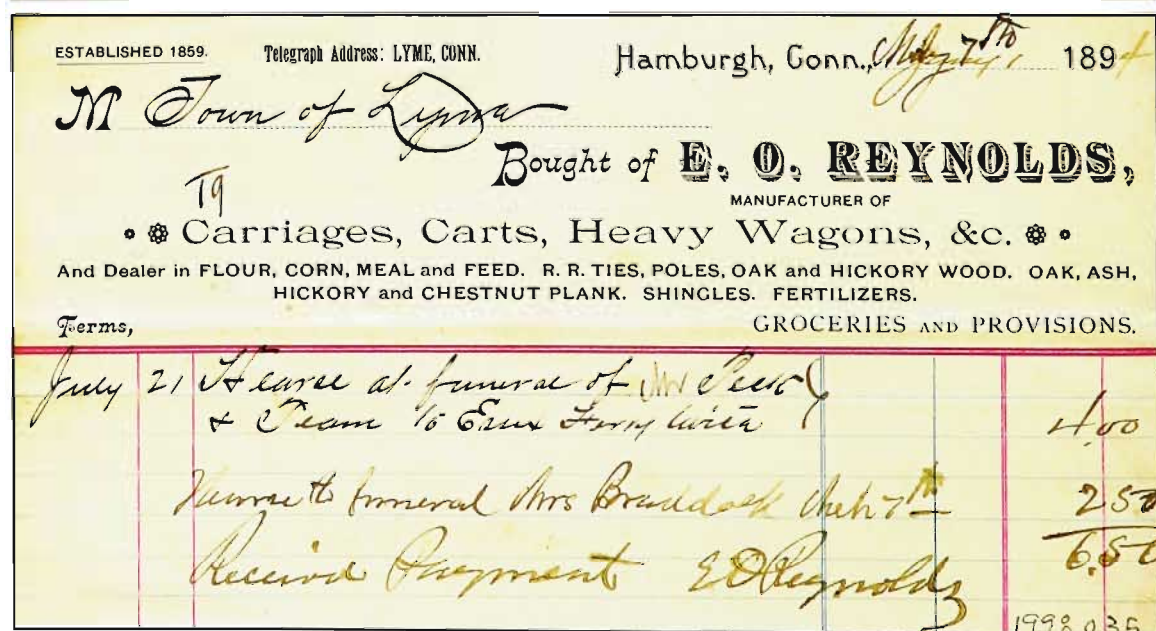 ESTABLISHED 1859. Telegraph Address: LYME, CONN. Hamburgh, Conn., 7th 1894
M Town of Lyme
Bought of E. O. REYNOLDS,
MANUFACTURER OF
Carriages, Carts, Heavy Wagons, &c.
And Dealer in FLOUR, CORN, MEAL and FEED. R. R. TIES, POLES, OAK and HICKORY WOOD. OAK, ASH,
HICKORY and CHESTNUT PLANK. SHINGLES. FERTILIZERS.
Terms, GROCERIES AND PROVISIONS.
July 21 Hearse at funeral of Mr Peck
& Team to Essex Ferry with 4.00
Hearse to funeral Mrs Braddock Mch 7th 2 50
6.50
Received Payment E O Reynolds